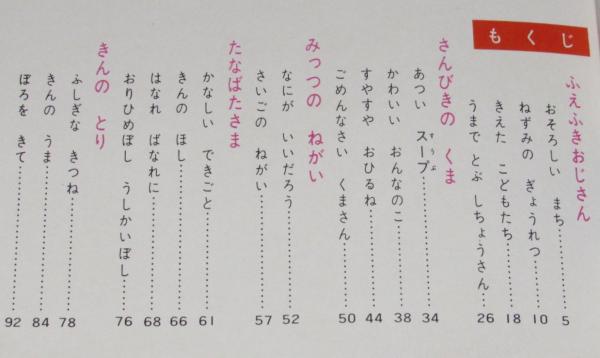 もくじ
ふえふきおじさん
おそろしい まち……5
ねずみの ぎょうれつ……10
きえた こどもたち……18
うまで とぶ しちょうさん……26
さんびきの くま
あつい スープ……34
すうぷ
かわいい おんなのこ……38
すやすや おひるね……44
ごめんなさい くまさん……50
みっつの ねがい
なにが いいだろう……52
さいごの ねがい……57
たなばたさま
かなしい できごと……61
きんの ほし……66
はなれ ばなれに……68
おりひめぼし うしかいぼし……76
きんの とり
ふしぎな きつね……78
きんの うま……84
ぼろを きて……92